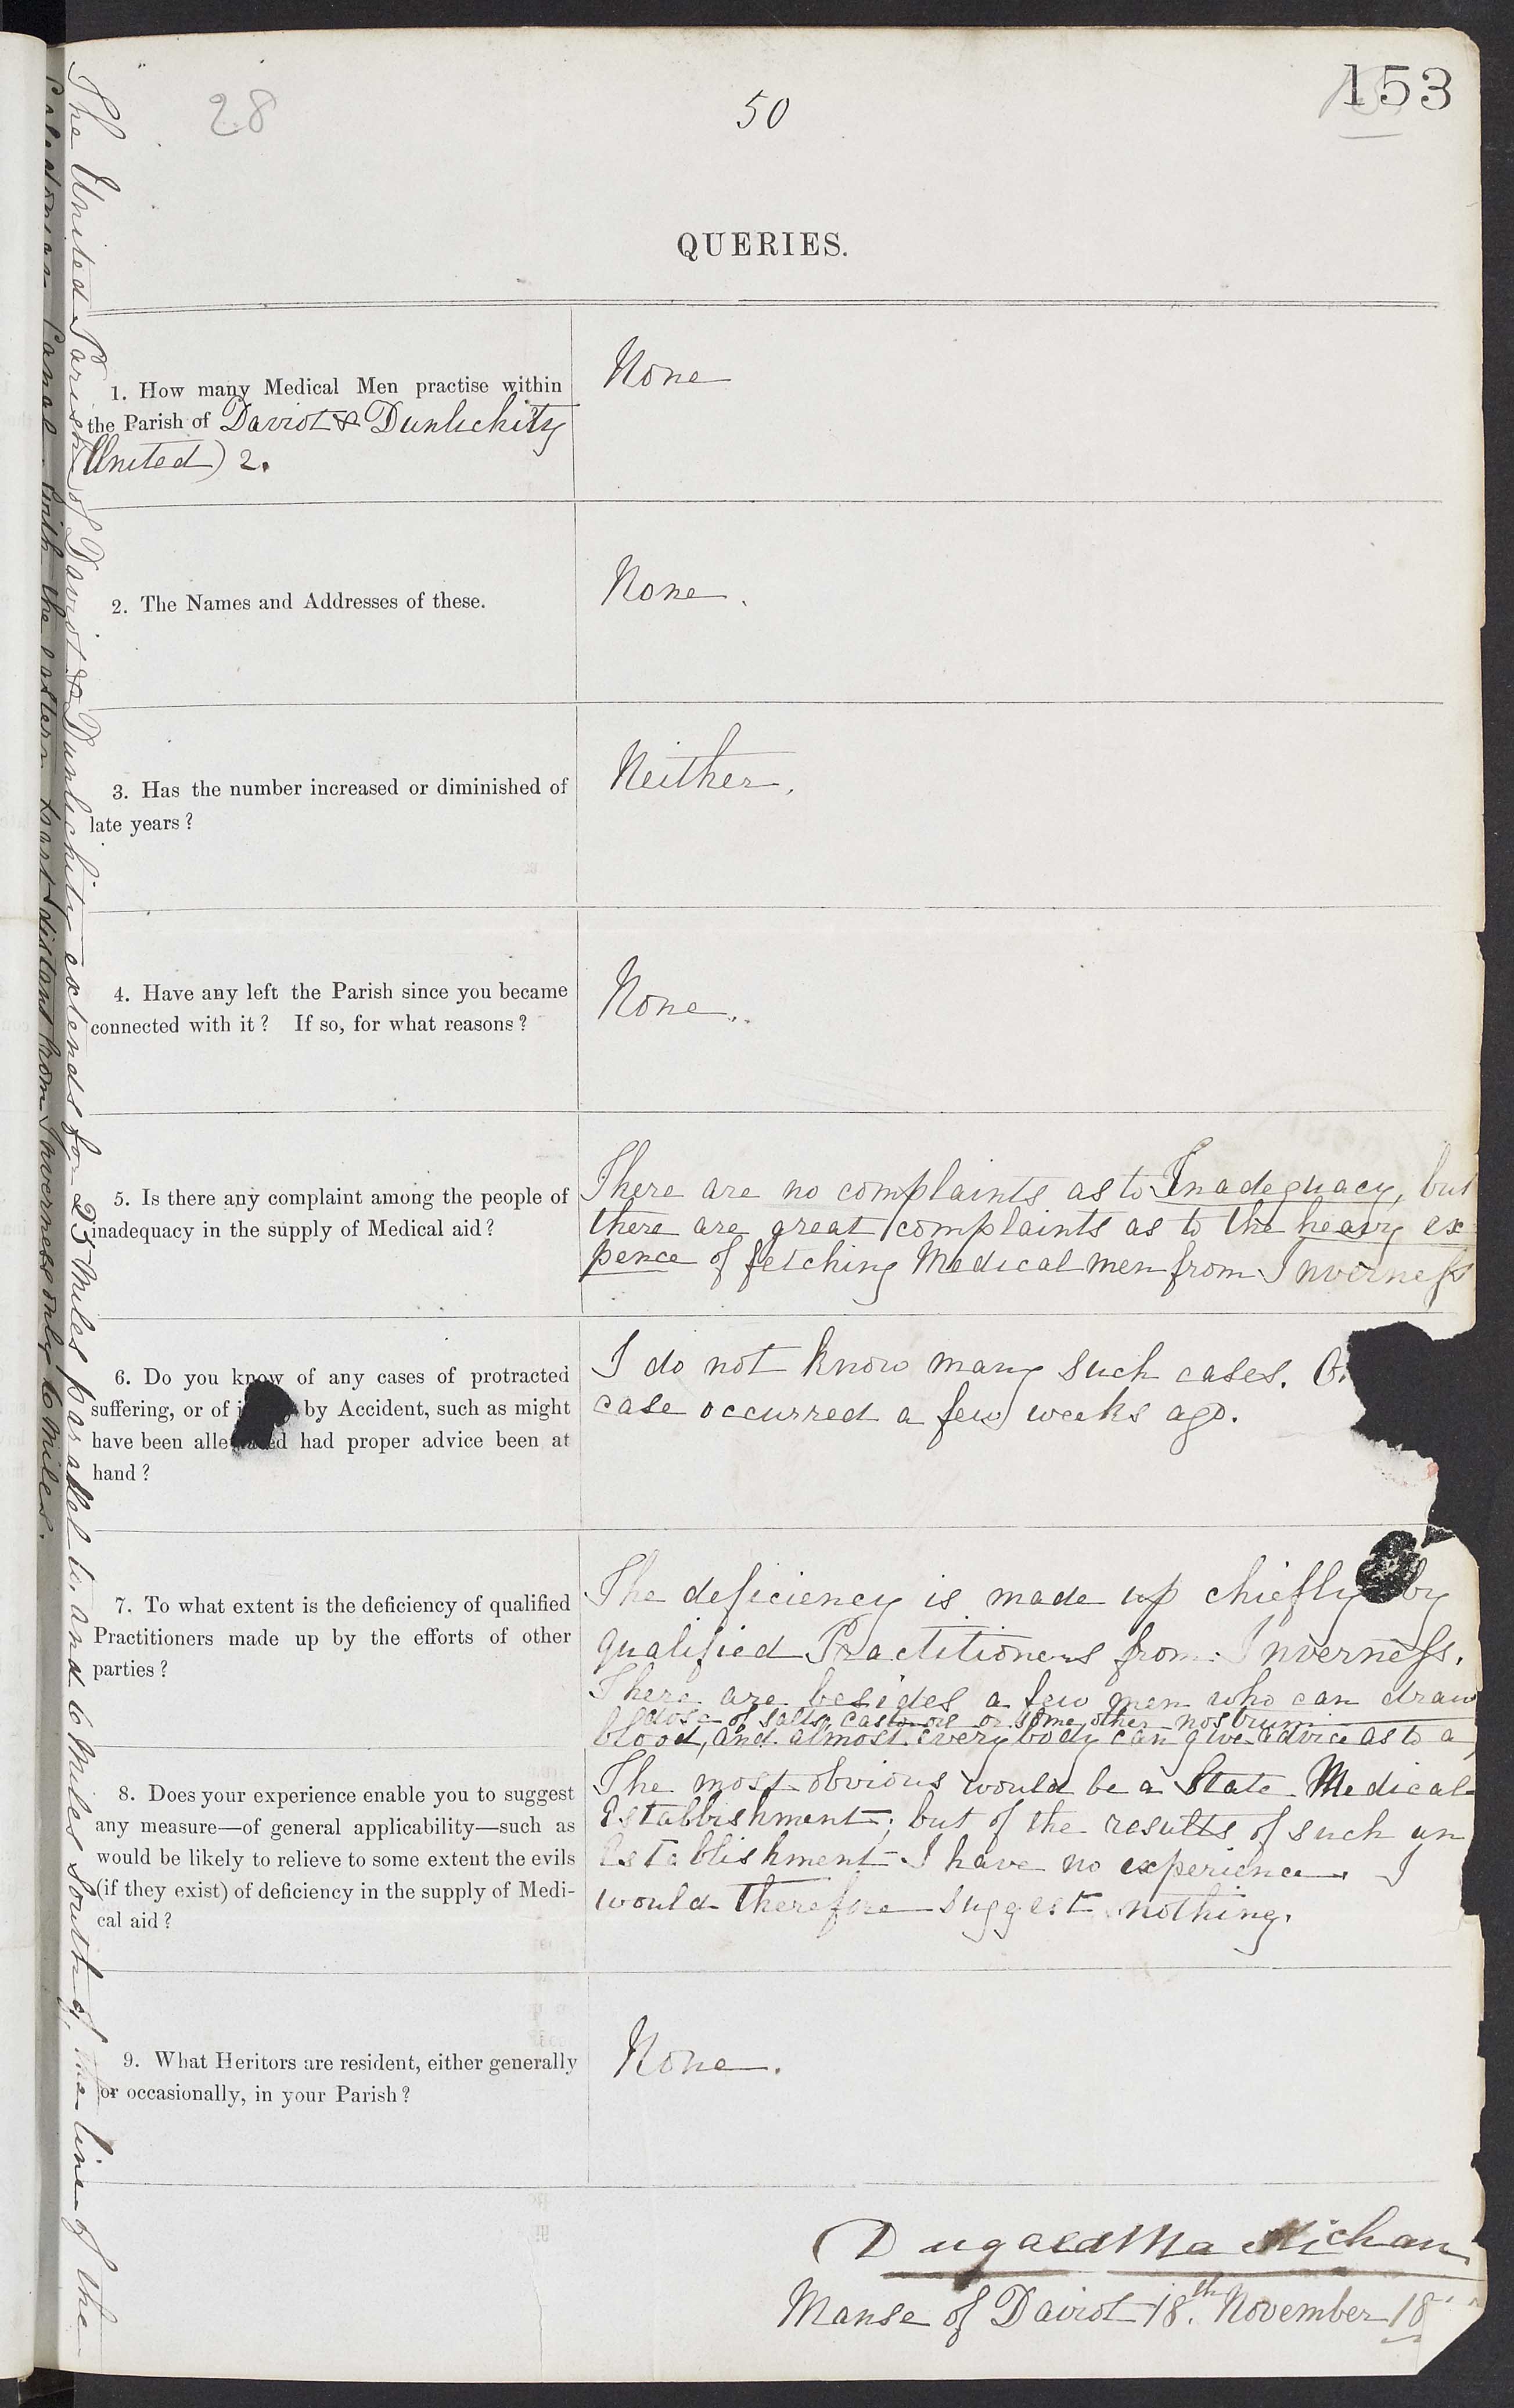 28
50
153
QUERIES.
1. How many Medical Men practise within
the Parish of Daviot & Dunlichity
(United) 2.
None
2. The Names and Addresses of these.
None.
3. Has the number increased or diminished of
late years?
Neither.
4. Have any left the Parish since you became
connected with it? If so, for what reasons?
None.
5. Is there any complaint among the people of
inadequacy in the supply of Medical aid?
There are no complaints as to Inadequacy, but
there are great complaints as to the heavy ex
pence of fetching Medical men from Inverness
6. Do you know of any cases of protracted
suffering, or of by Accident, such as might
have been had proper advice been at
hand?
I do not know many such cases.
case occurred a few weeks ago.
7. To what extent is the deficiency of qualified
Practitioners made up by the efforts of other
parties?
The deficiency is made up chiefly by
qualified Practitioners from Inverness.
There are besides a few men who can draw
blood, and almost every body can give advice as to a
dose of salts, castor oil or some other nostrum
8. Does your experience enable you to suggest
any measure—of general applicability—such as
would be likely to relieve to some extent the evils
(if they exist) of deficiency in the supply of Medi-
cal aid?
The most obvious would be a State Medical
Establishment; but of the results of such an
Establishment I have no experience. I
would therefore suggest nothing.
9. What Heritors are resident, either generally
or occasionally, in your Parish?
None.
Dugald Ma
Manse of Daviot 18th. November 18
The United Parish of Daviot & Dunlichity extends for 25 miles parallel to and 6 Miles South of the line of the
Caledonian Canal with the eastern part distant from Inverness only 6 miles.